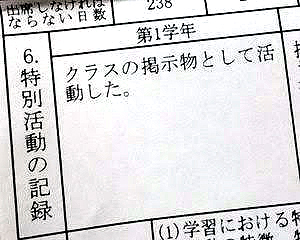 出席しなければ
ならない日数
238
第1学年
6.特別活動の記録
クラスの掲示物として活
動した。
(1)学習における特